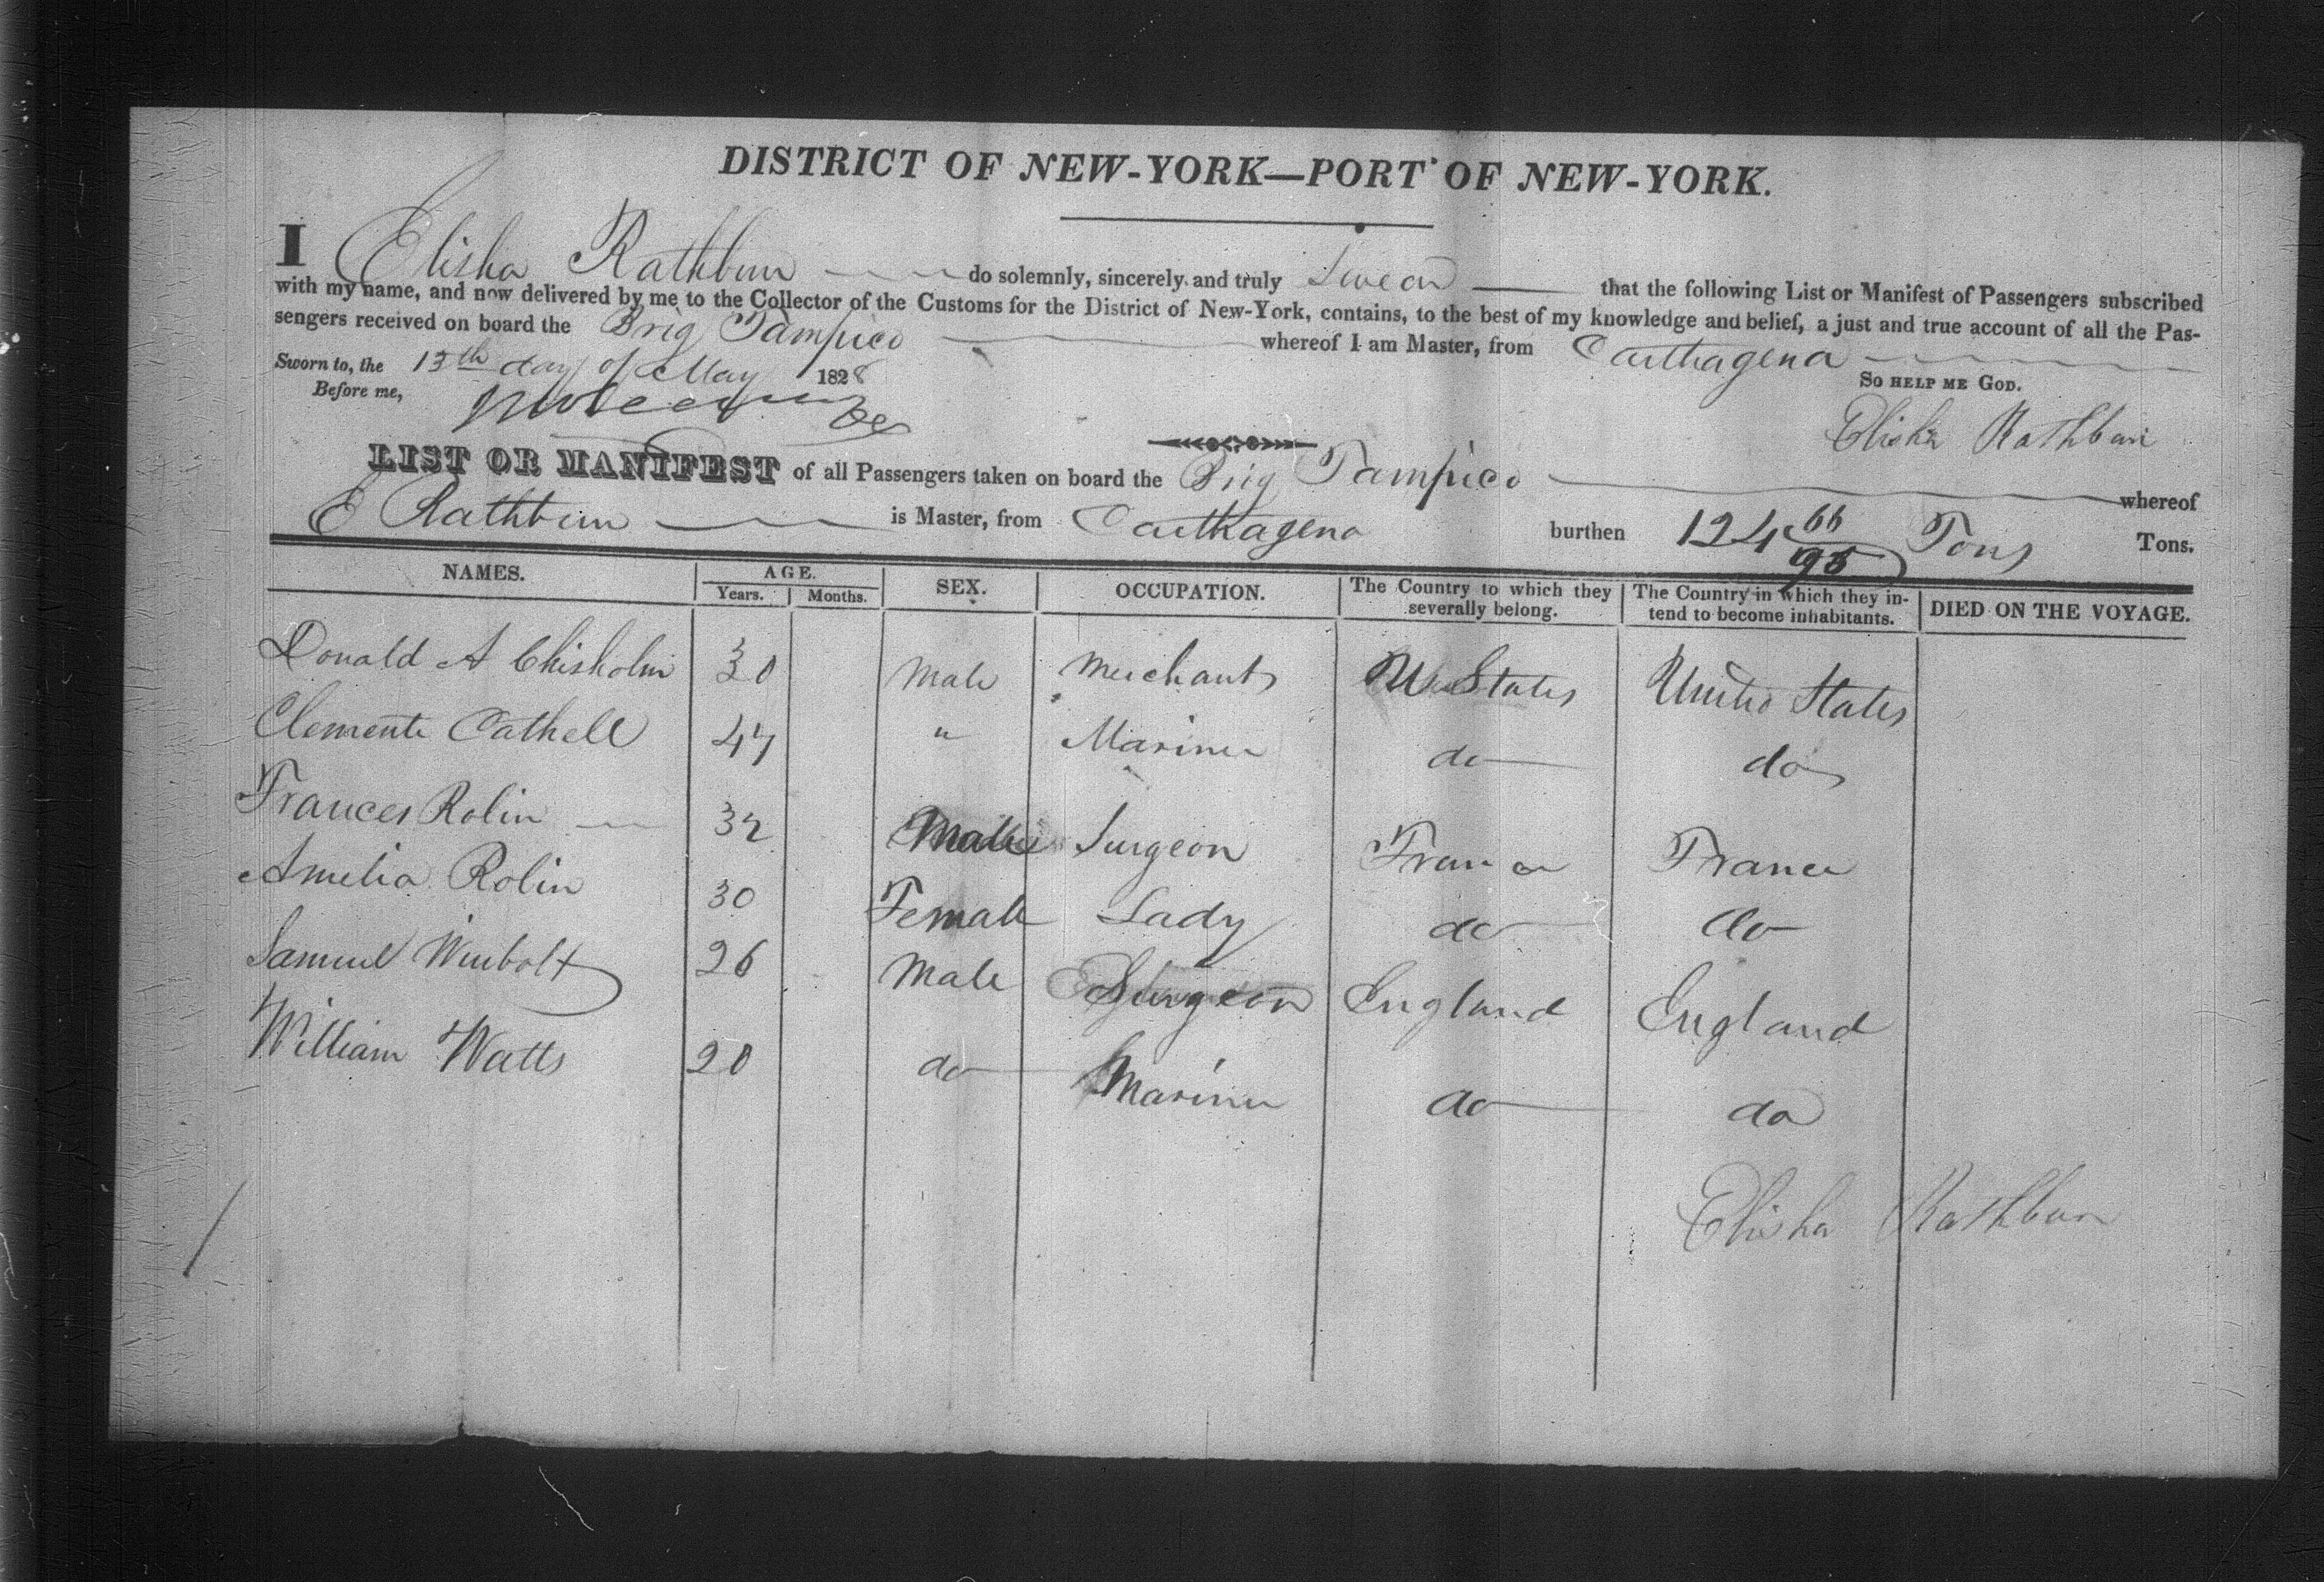 DISTRICT OF NEW-YORK—PORT OF NEW-YORK.
I Elisha Rathbun do solemnly, sincerely and truly Swear that the following List or Manifest of Passengers subscribed
with my name, and now delivered by me to the Collector of the Customs for the District of New-York, contains, to the best of my knowledge and belief, a just and true account of all the Pas-
sengers received on board the Brig Tampico whereof I am Master, from Carthagena
Sworn to, the 13th day of May 1828 SO HELP ME GOD.
Before me,
Elisha Rathbun
LIST OR MANIFEST of all Passengers taken on board the Brig Tampico whereof
E Rathbun is Master, from Carthagena burthen 124 66/95 Tons Tons.
NAMES. AGE. Years. Months. SEX. OCCUPATION. The Country to which they severally belong. The Country in which they in-tend to become inhabitants. DIED ON THE VOYAGE.
Donald A Chisholm 30 Male Merchant U States United States
Clemente Cathell 47 " Mariner do do
Frances Rolin 32 Male Surgeon France France
Amelia Rolin 30 Female Lady do do
Samuel Winbolt 26 Male Surgeon England England
William Watts 20 do Mariner do do
Elisha Rathbun